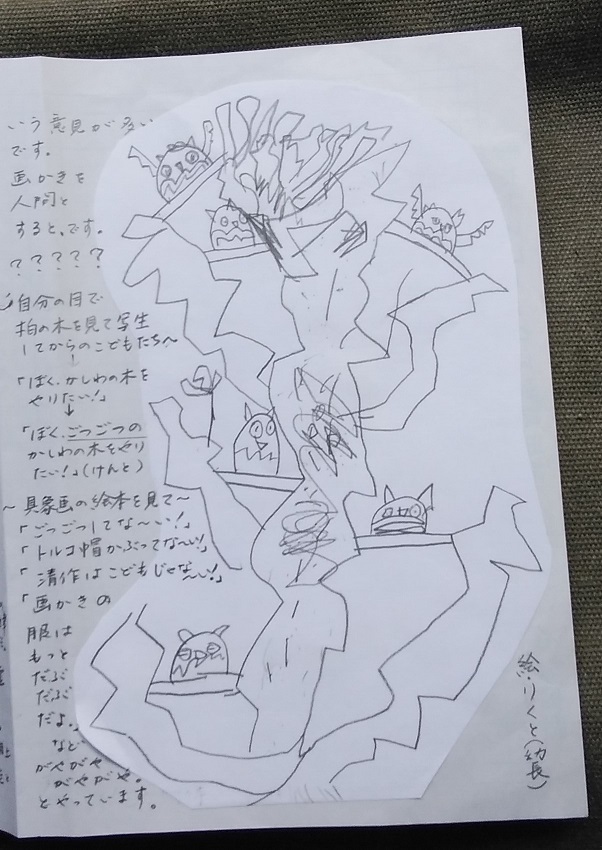 いう意見が多い
です。
画かきを
人間と
すると、です。
?????
自分の目で
柏の木を見て写生
してからのこどもたち〜
↓
「ぼく、かしわの木を
やりたい!」
↓
「ぼく、ごつごつの
かしわの木をやり
たい!」(けんと)
〜具象画の絵本を見て〜
「ごつごつしてな〜い!」
「トルコ帽かぶってな〜い!」
「清作はこどもじゃな〜い!」
「画かきの
服は
もっと
だぶ
だぶ
だよ。」
など
がやがや
がやがや。
とやっています。
絵・りくと(幼長)